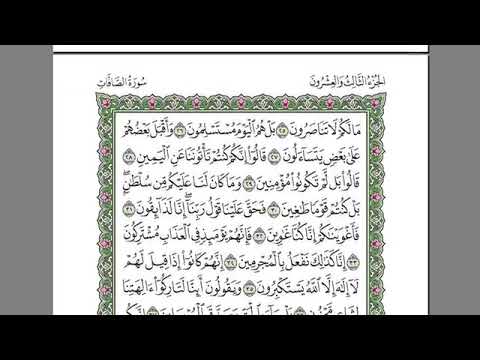 سُورَةُ الصَّافَّاتِ
الجُزْءُ الثَّالِثُ وَالعِشْرُونَ
مَا لَكُمْ لَا تَنَاصَرُونَ ٢٥ بَلْ هُمُ الْيَوْمَ مُسْتَسْلِمُونَ ٢٦ وَأَقْبَلَ بَعْضُهُمْ
عَلَىٰ بَعْضٍ يَتَسَاءَلُونَ ٢٧ قَالُوا إِنَّكُمْ كُنْتُمْ تَأْتُونَنَا عَنِ الْيَمِينِ ٢٨
قَالُوا بَلْ لَمْ تَكُونُوا مُؤْمِنِينَ ٢٩ وَمَا كَانَ لَنَا عَلَيْكُمْ مِنْ سُلْطَٰنٍ
بَلْ كُنْتُمْ قَوْمًا طَٰغِينَ ٣٠ فَحَقَّ عَلَيْنَا قَوْلُ رَبِّنَا إِنَّا لَذَائِقُونَ ٣١
فَأَغْوَيْنَٰكُمْ إِنَّا كُنَّا غَٰوِينَ ٣٢ فَإِنَّهُمْ يَوْمَئِذٍ فِي الْعَذَابِ مُشْتَرِكُونَ
٣٣ إِنَّا كَذَٰلِكَ نَفْعَلُ بِالْمُجْرِمِينَ ٣٤ إِنَّهُمْ كَانُوا إِذَا قِيلَ لَهُمْ
لَا إِلَٰهَ إِلَّا اللَّهُ يَسْتَكْبِرُونَ ٣٥ وَيَقُولُونَ أَئِنَّا لَتَارِكُوا آلِهَتِنَا